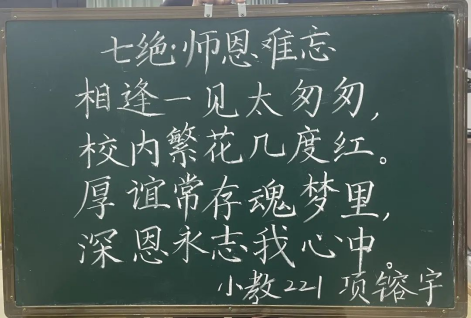 七绝·师恩难忘
相逢一见太匆匆,
校内繁花几度红。
厚谊常存魂梦里,
深恩永志我心中。
小教221 项镕宇